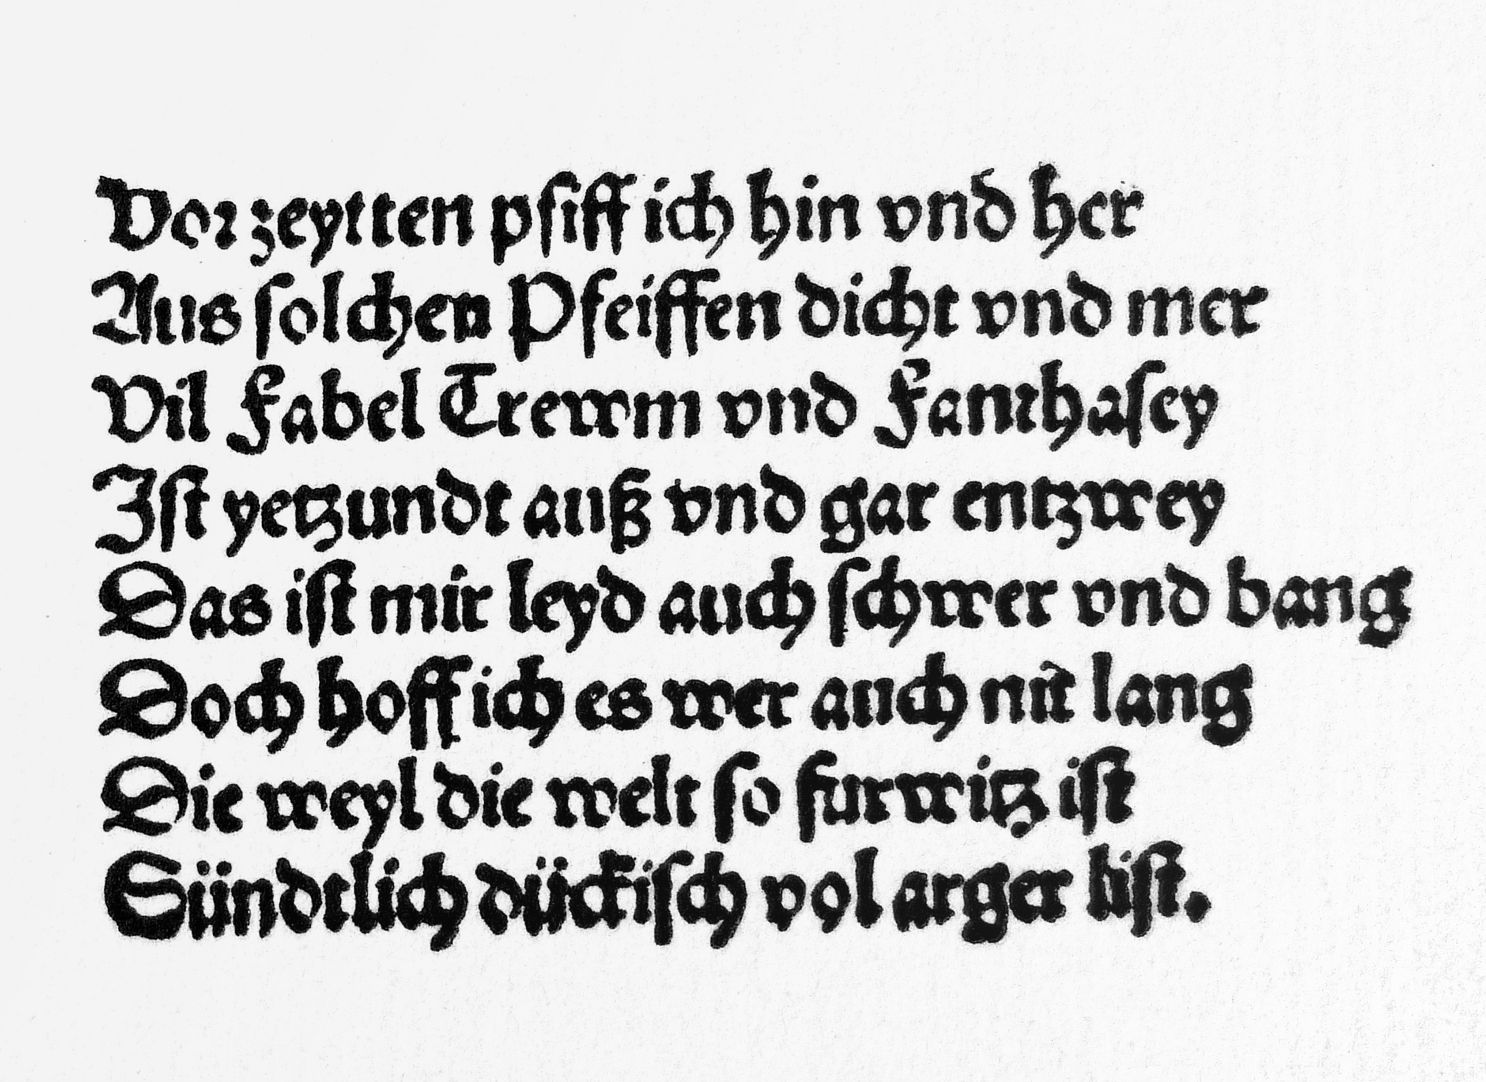 Vor zeytten pfiff ich hin vnd her
Aus solchen Pfeiffen dicht vnd mer
Vil Fabel Trewm vnd Fanthasey
Ist yetzundt auß vnd gar entzwey
Das ist mir leyd auch schwer vnd bang
Doch hoff ich es wer auch nit lang
Die weyl die welt so furwitz ist
Sündtlich dückisch vol arger list.